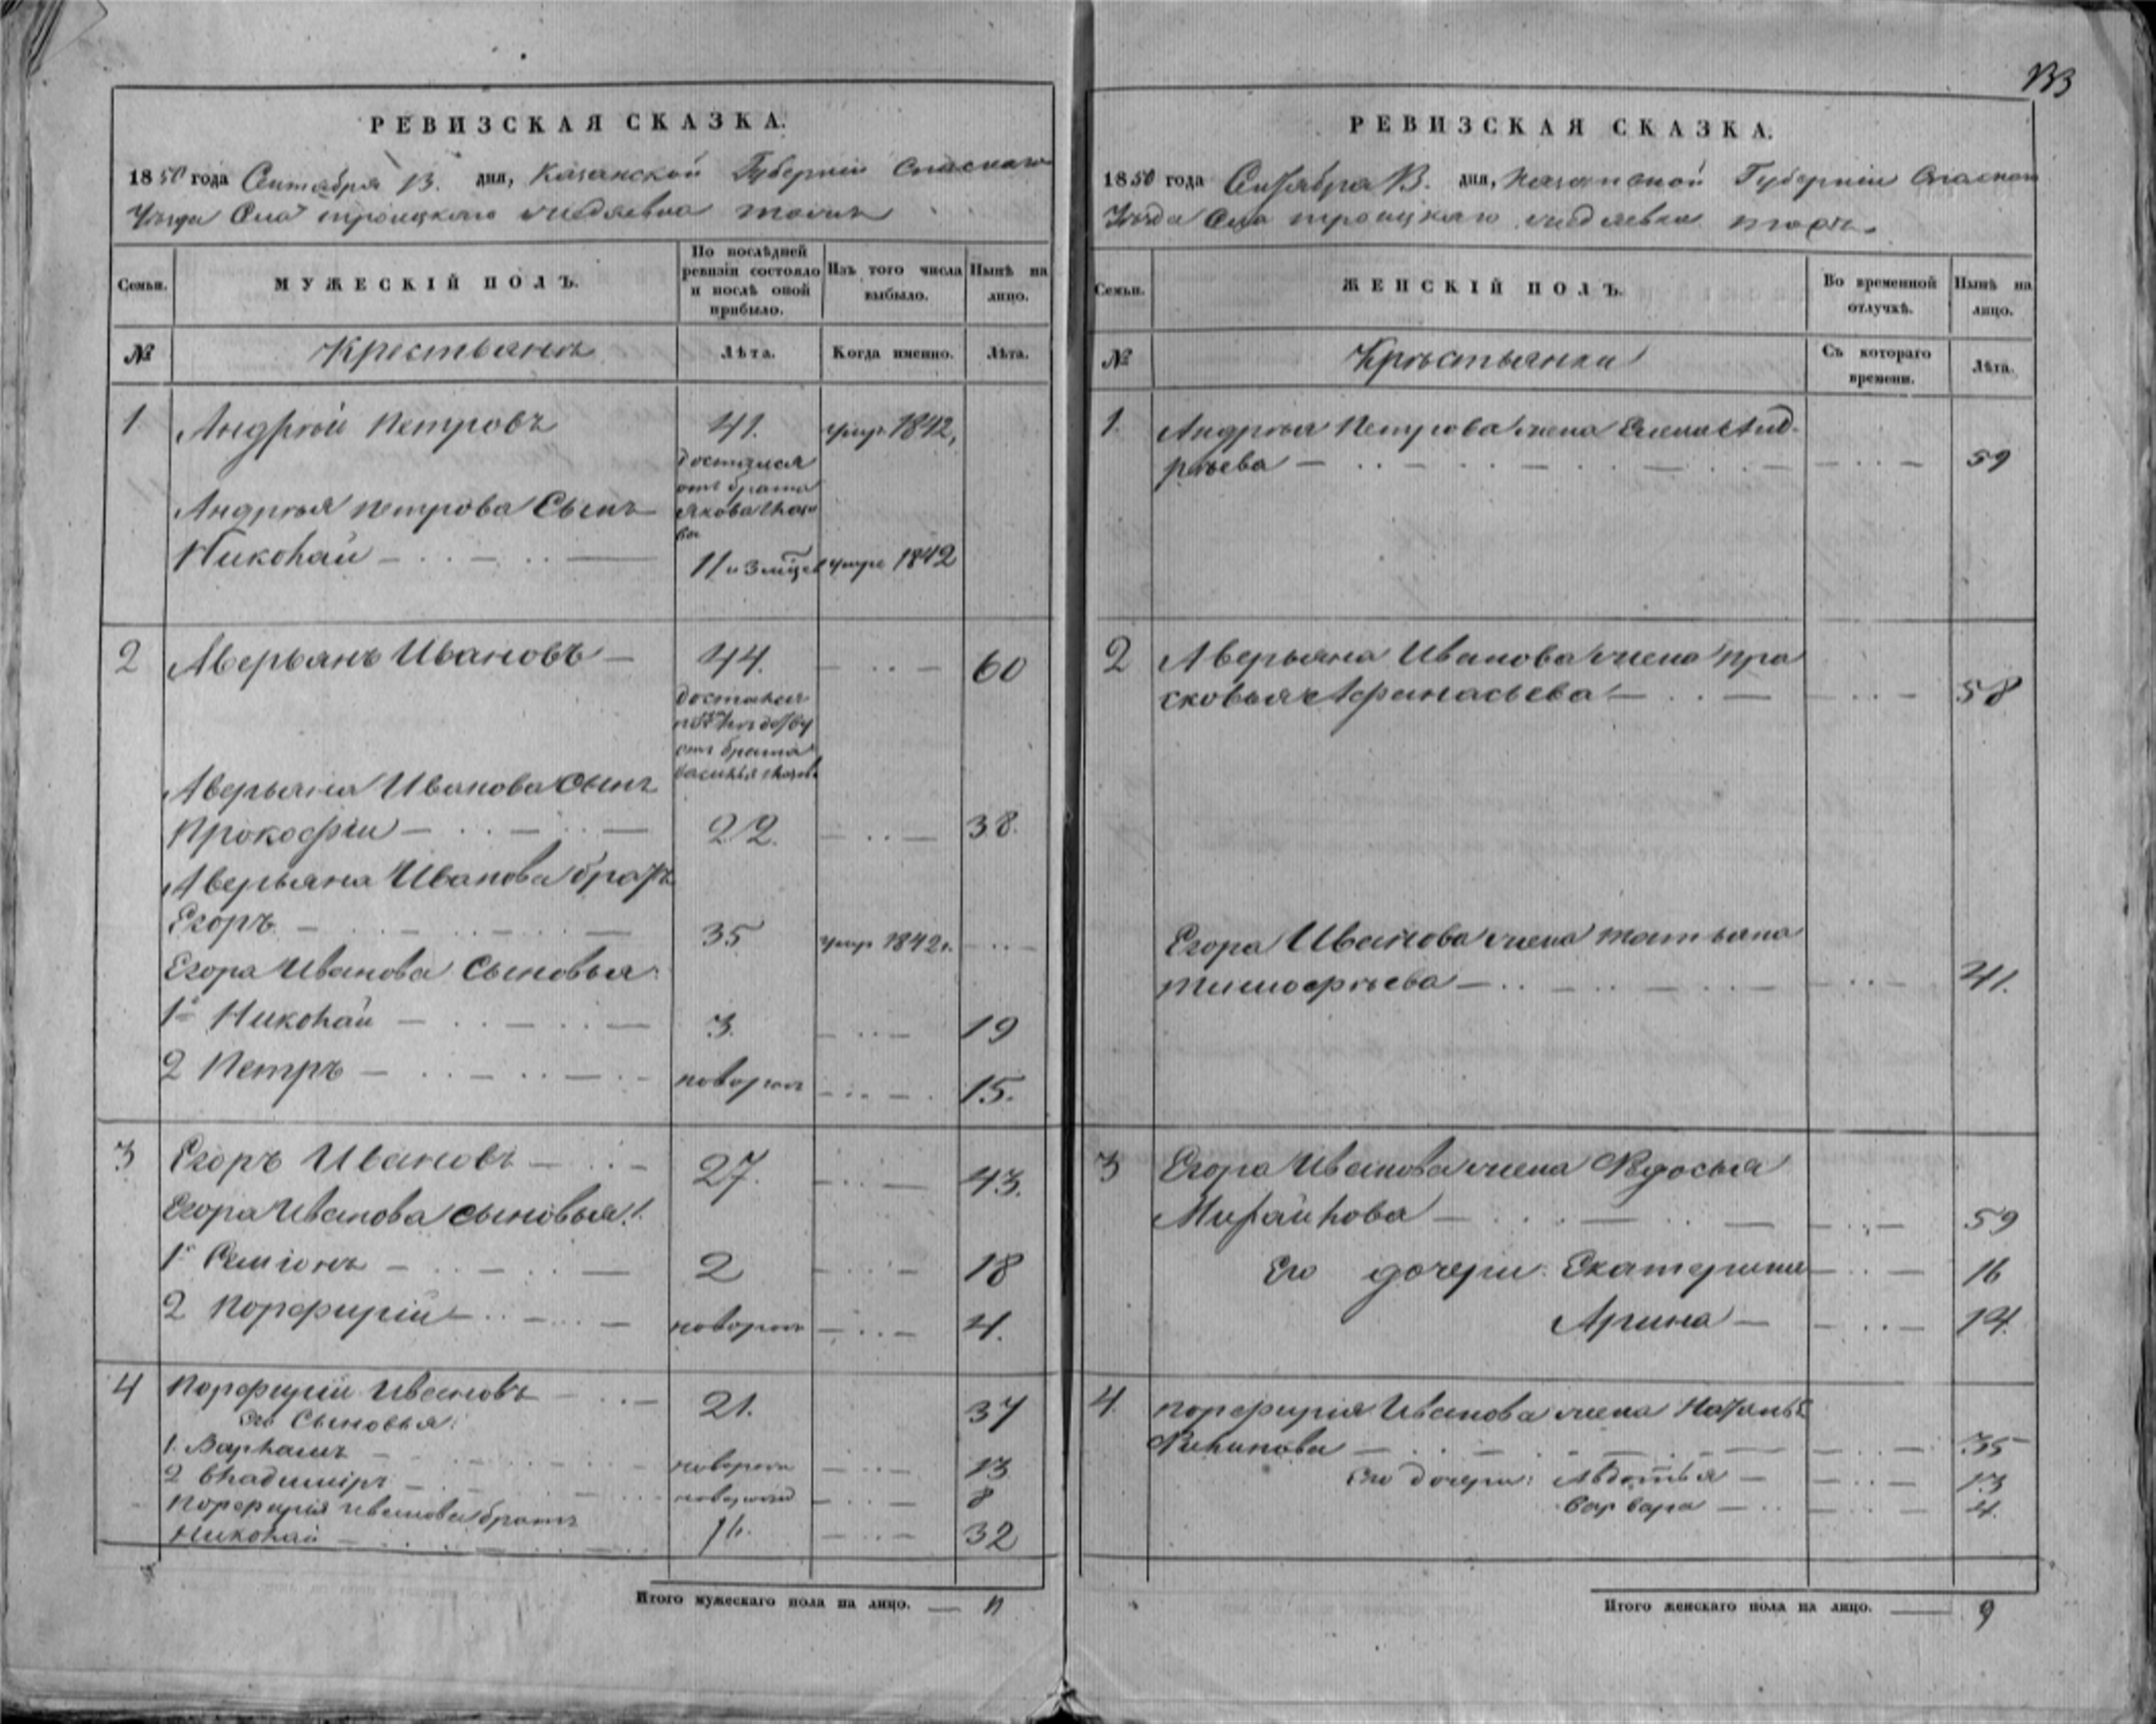 133
РЕВИЗСКАЯ СКАЗКА.
1850 года Сентября 13. дня, Казанской Губерніи Спаскаго
Уезда Села троицкаго тожъ
Семьи.
МУЖЕСКІЙ ПОЛЪ.
По послѣдней ревизіи состояло и послѣ оной прибыло.
Изъ того числа выбыло.
Нынѣ на лицо.
№
Крестьянъ
Лѣта.
Когда именно.
Лѣта.
1 Андрей Петровъ 41. умр. 1842,
достался
отъ брата
Якова
Андрея Петрова Сынъ
Николай 11 и 3 мцев умре 1842
2 Аверьянъ Ивановъ 44. 60
достался
отъ брата
Василья
Аверьяна Иванова сынъ
Прокофіи 22. 38.
Аверьяна Иванова братъ
Егоръ 35 умр 1842.
Егора Иванова Сыновья:
1й Николай 3. 19
2 Петръ новорож 15.
3 Егоръ Ивановъ 27. 43.
Егора Иванова сыновья:
1й Семіонъ 2 18
2 Порфиріи новорож 4.
4 Порфиріи Ивановъ 21. 37
его Сыновья:
1. Варламъ новорож 13
2 Владимиръ новорож 8
Порфирія Иванова братъ
Николай 16. 32
Итого мужескаго пола на лицо. 11
РЕВИЗСКАЯ СКАЗКА.
1850 года Сентября 13. дня, Казанской Губерніи Спаскаго
Уезда Села троицкаго тожъ.
Семьи.
ЖЕНСКІЙ ПОЛЪ.
Во временной отлучкѣ.
Нынѣ на лицо.
№
Крестьянки
Съ котораго времени.
Лѣта.
1. Андрея Петрова жена Елена Анд-
рѣева 59
2 Аверьяна Иванова жена Пра
сковья Афанасьева 58
Егора Иванова жена татьяна
тимофѣева 41.
3 Егора Иванова жена Федосья
Михайлова 59
Его дочери: Екатерина 16
Арина 14.
4. порфирія Иванова жена Наталья
Филипова 35
Его дочери: Авдотья 13
Варвара 4.
Итого женскаго пола на лицо. 9